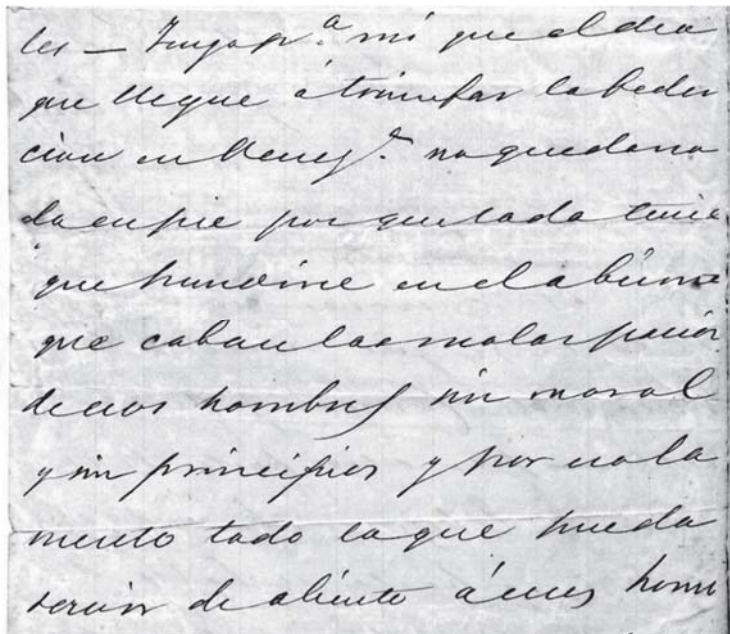 les — Tengo p.ª mi que el dia
que llegue á triunfar la Feder
cion en Venez.ª no queda na
da en pie por que todo tenia
que hundirse en el abismo
que caban las malas pacion
de esos hombres sin moral
y sin principios y por eso la
mento todo lo que pueda
servir de aliento á esos hom